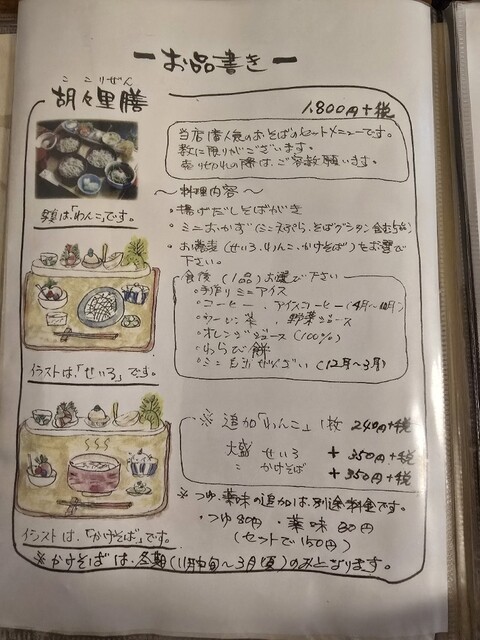 ーお品書きー
ここりぜん
胡々里膳
1,800円+税
当店1番人気のおそばのセットメニューです。
数に限りがございます。
売り切れの際は、ご容赦願います。
写真は「わんこ」です。
〜料理内容〜
・揚げだしそばがき
・ミニおかず(ミニ天ぷら、そばグラタン含む5種)
・お蕎麦(せいろ・わんこ・かけそば)をお選び
下さい。
食後(1品)お選び下さい
・手作りミニアイス
・コーヒー、アイスコーヒー(4月〜10月)
・ウーロン茶、野菜ジュース
・オレンジジュース(100%)
・わらび餅
・ミニぜんざい(12月〜3月)
イラストは、「せいろ」です。
※追加「わんこ」1枚 240円+税
大盛 せいろ +350円+税
〃 かけそば +350円+税
※つゆ、薬味の追加は、別途料金です。
・つゆ80円・薬味80円
(セットで150円)
イラストは、「かけそば」です。
※かけそばは、冬期(11月中旬〜3月頃)のみとなります。